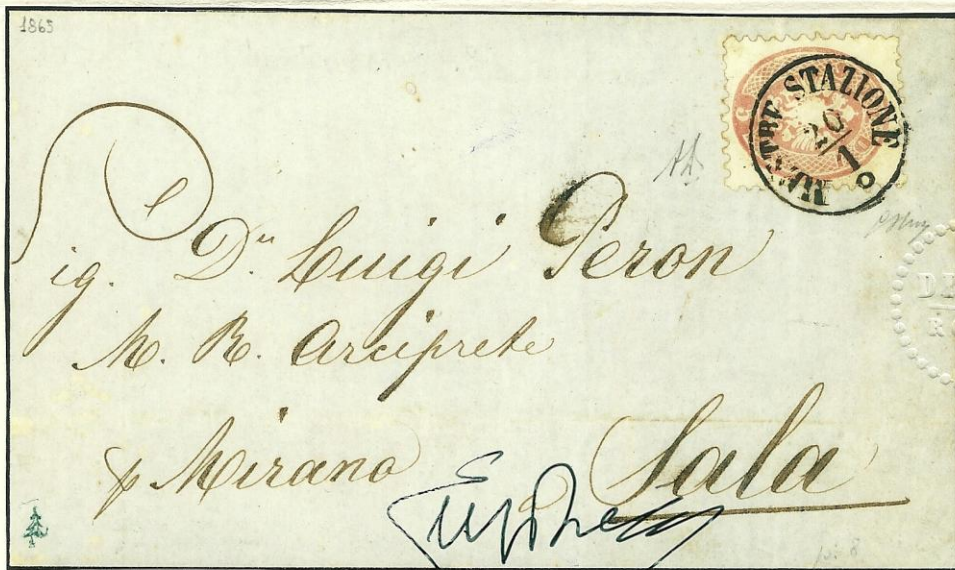 1865
MESTRE STAZIONE
20/1
Sig. Dn Luigi Peron
M. R. Arciprete
p Mirano Sala